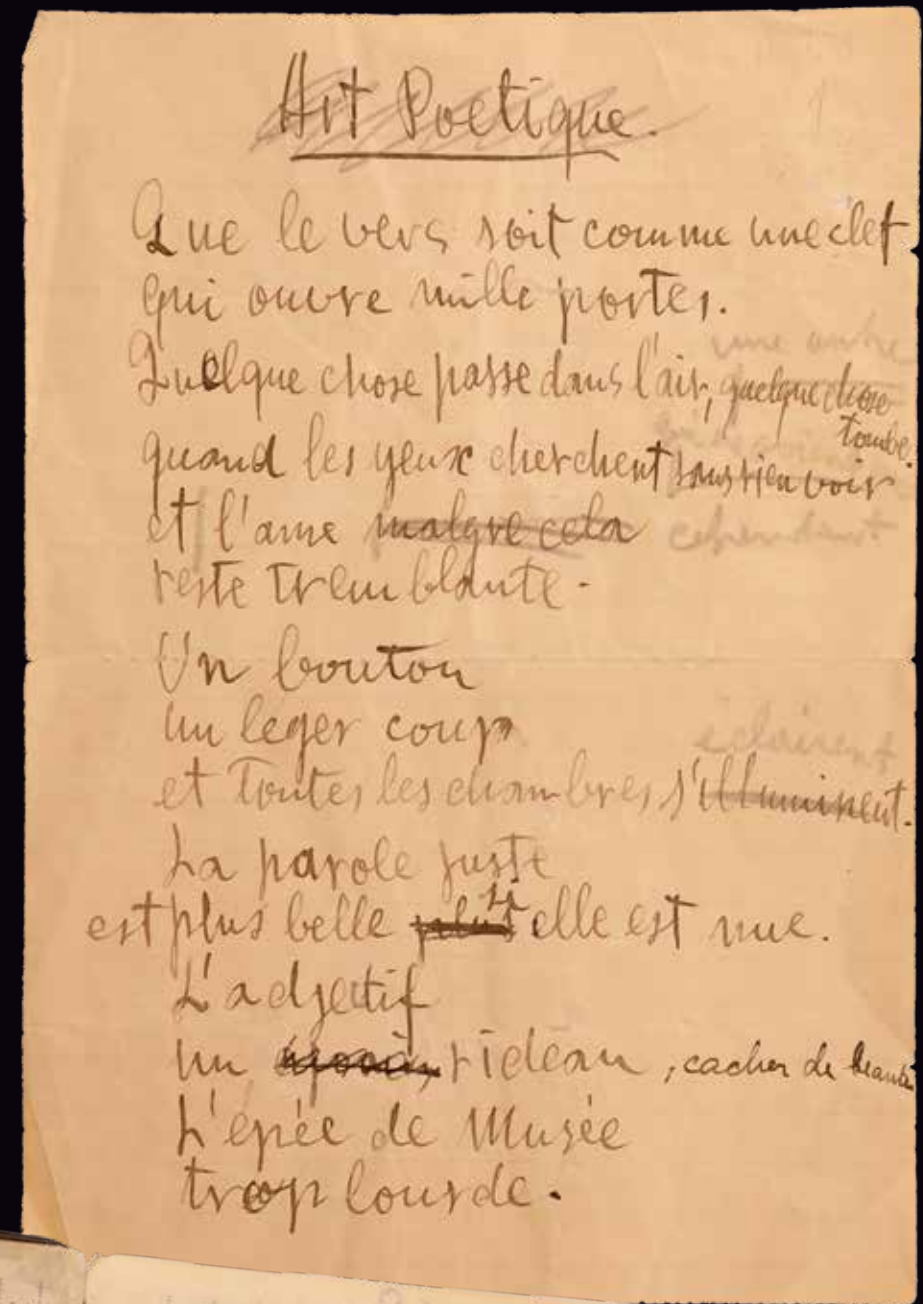 Art Poetique.
Que le vers soit comme une clef
qui ouvre mille portes.
une autre
Quelque chose passe dans l'air, quelque chose
tombe.
quand les yeux cherchent sans rien voir
et l'ame malgre cela cependant
reste tremblante -
Un bouton
un leger coup
eclairent
et toutes les chambres s'illuminent.
La parole juste
si
est plus belle plus elle est nue.
L'adjectif
un rideau, cacher de beauté
L'épée de Musée
trop lourde.